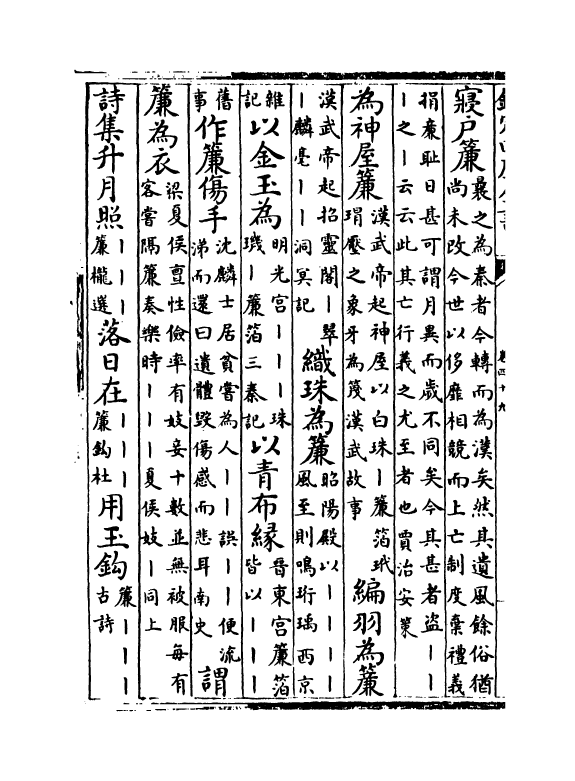 卷四十九
寢戶簾曩之為秦者今轉而為漢矣然其遺風餘俗猶
尚未改今世以侈靡相競而上亡制度棄禮義
捐廉耻日甚可謂月異而歲不同矣今其甚者盗丨丨
丨之丨云云此其亡行義之尤至者也賈治安策
為神屋簾漢武帝起神屋以白珠丨簾箔玳
瑁壓之象牙為篾漢武故事
編羽為簾
漢武帝起招靈閣丨翠
丨麟毫丨丨洞冥記
織珠為簾昭陽殿以丨丨丨丨
風至則鳴珩瑀西京
雜
記
以金玉為明光宮丨丨丨珠
璣丨簾箔三秦記
以青布緣晉東宮簾箔
皆以丨丨丨
舊
事
作簾傷手沈麟士居貧嘗為人丨丨誤丨丨便流
涕而還曰遺體毀傷感而悲耳南史
謂
簾為衣梁夏侯亶性儉率有妓妾十數並無被服每有
客嘗隔簾奏樂時丨丨丨夏侯妓丨同上
詩集升月照丨丨丨丨
簾櫳選
落日在丨丨丨
簾鈎杜
用玉鈎簾丨丨丨
古詩